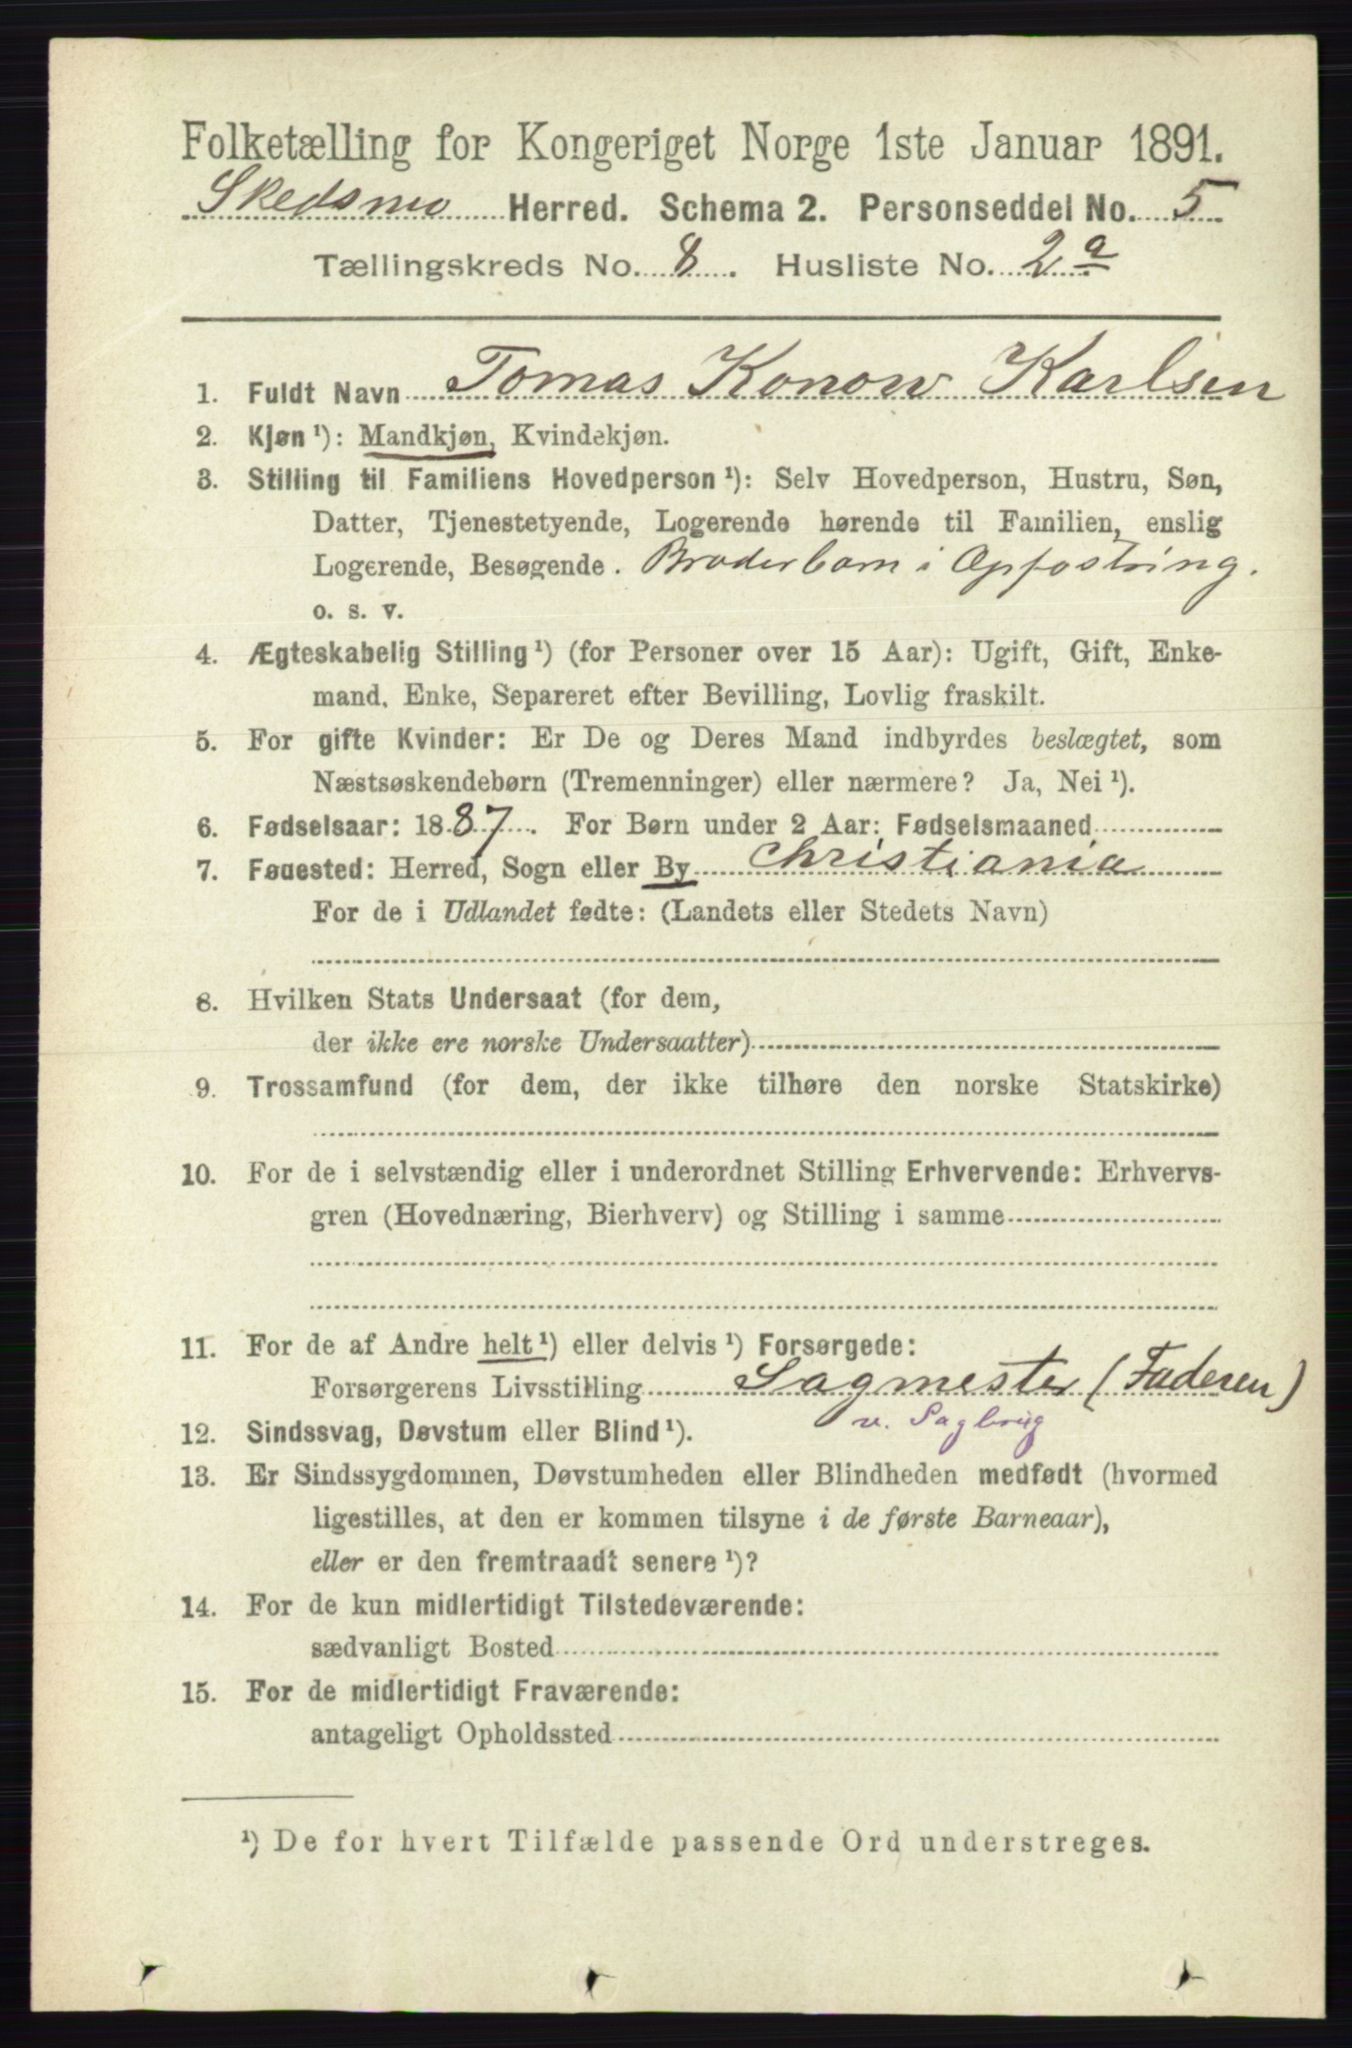 Folketælling for Kongeriget Norge 1ste Januar 1891.
Skedsmo Herred. Schema 2. Personseddel No. 5
Tællingskreds No. 8. Husliste No. 2 a
1. Fuldt Navn Tomas Konow Karlsen
2. Kjøn ¹): Mandkjøn, Kvindekjøn.
3. Stilling til Familiens Hovedperson ¹): Selv Hovedperson, Hustru, Søn,
Datter, Tjenestetyende, Logerende hørende til Familien, enslig
Logerende, Besøgende. Broderbarn i Opfostring.
o. s. v.
4. Ægteskabelig Stilling ¹) (for Personer over 15 Aar): Ugift, Gift, Enke-
mand, Enke, Separeret efter Bevilling, Lovlig fraskilt.
5. For gifte Kvinder: Er De og Deres Mand indbyrdes beslægtet, som
Næstsøskendebørn (Tremenninger) eller nærmere? Ja, Nei ¹).
6. Fødselsaar: 1887. For Børn under 2 Aar: Fødselsmaaned
7. Fødested: Herred, Sogn eller By Christiania
For de i Udlandet fødte: (Landets eller Stedets Navn)
8. Hvilken Stats Undersaat (for dem,
der ikke ere norske Undersaatter)
9. Trossamfund (for dem, der ikke tilhøre den norske Statskirke)
10. For de i selvstændig eller i underordnet Stilling Erhvervende: Erhvervs-
gren (Hovednæring, Bierhverv) og Stilling i samme
11. For de af Andre helt ¹) eller delvis ¹) Forsørgede:
Forsørgerens Livsstilling Sagmester (Faderen)
v. Sagbrug
12. Sindssvag, Døvstum eller Blind ¹).
13. Er Sindssygdommen, Døvstumheden eller Blindheden medfødt (hvormed
ligestilles, at den er kommen tilsyne i de første Barneaar),
eller er den fremtraadt senere ¹)?
14. For de kun midlertidigt Tilstedeværende:
sædvanligt Bosted
15. For de midlertidigt Fraværende:
antageligt Opholdssted
¹) De for hvert Tilfælde passende Ord understreges.